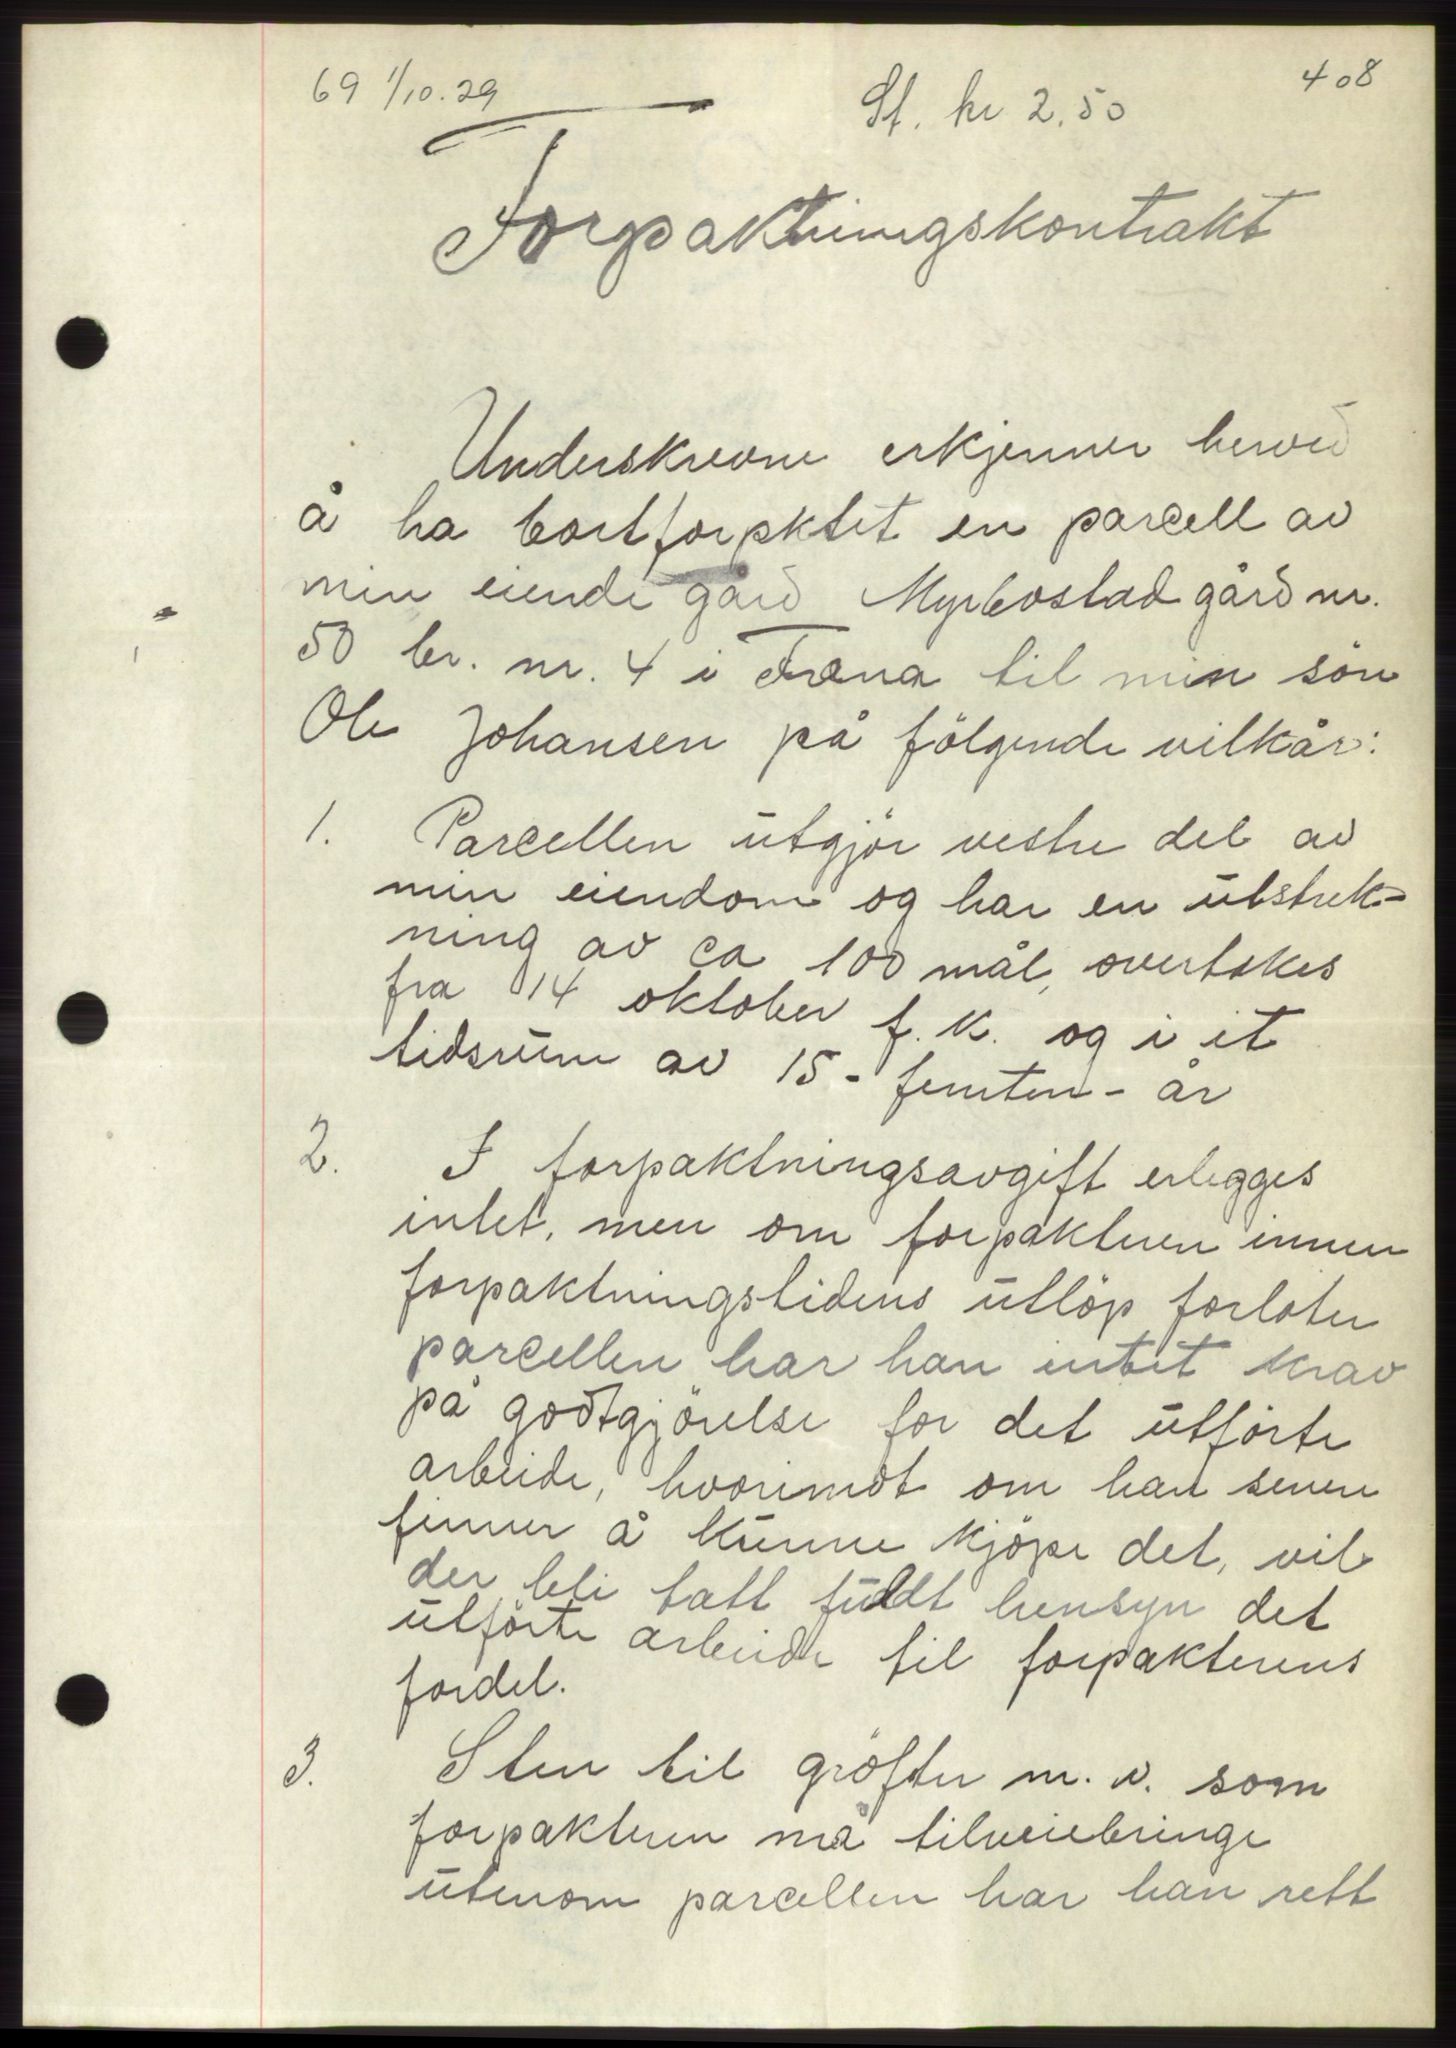 69 1/10.29
408
St. kr 2.50
Forpaktningskontrakt
Underskrevne erkjenner herved
å ha bortforpktet en parcell av
min eiende gård Myrbostad gård nr.
50 br. nr. 4 i Fræna til min sön
Ole Johansen på fölgende vilkår:
1. Parcellen utgjör vestre del av
min eiendom og har en utstrek-
ning av ca 100 mål, overtakes
fra 14 oktober f. k. og i et
tidsrum av 15 - femten - år
2. I forpaktningsavgift erlegges
intet, men om forpakteren innen
forpaktningstidens utlöp forlater
parcellen har han intet krav
på godtgjörelse for det utförte
arbeide, hvorimot om han senere
finner å kunne kjöpe det, vil
der bli tatt fuldt hensyn det
utförte arbeide til forpakterens
fordel.
3. Sten til gröfter m. v. som
forpakteren må tilveiebringe
utenom parcellen har han rett